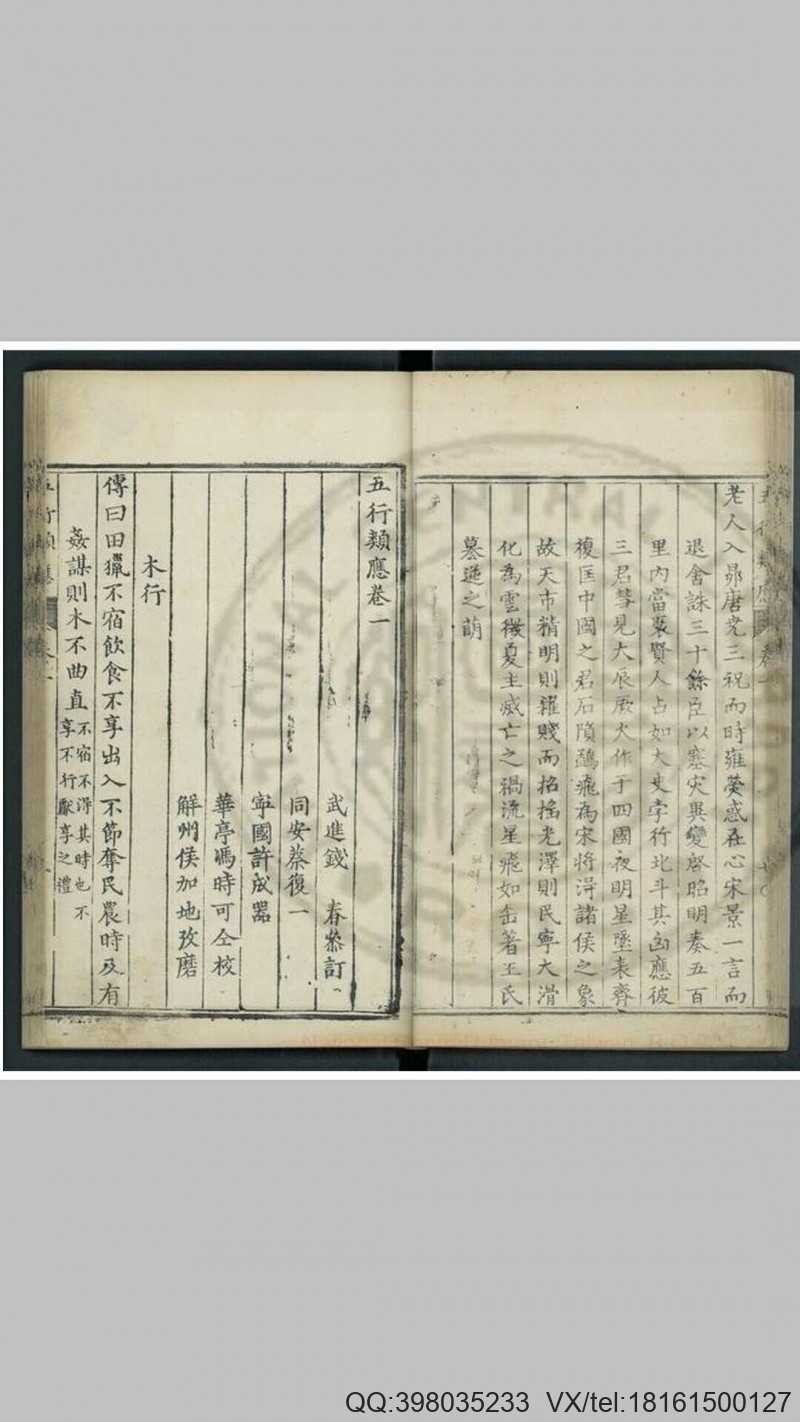 老人入昴唐堯三祝而時雍熒惑在心宋景一言而
退舍誅三十餘臣以塞災異變啓昭明奏五百
里內當聚賢人占如大史孛行北斗其幽應彼
三君彗見大辰厥火作于四國夜明星墜表齊
復匡中國之君石隕鷁飛為宋將得諸侯之象
故天市精明則糴賤而招搖光澤則民寧大滑
化為雲徵夏主滅亡之禍流星飛如缶著王氏
墓逆之萌
五行類應卷一
武進錢 春叅訂
同安蔡復一
寧國許成器
華亭馮時可仝校
解州侯加地孜磨
木行
傳曰田獵不宿飲食不享出入不節奪民農時及有
姦謀則木不曲直不宿不得其時也不享不行獻享之禮
五行類應
QQ:398035233 VX/tel:18161500127